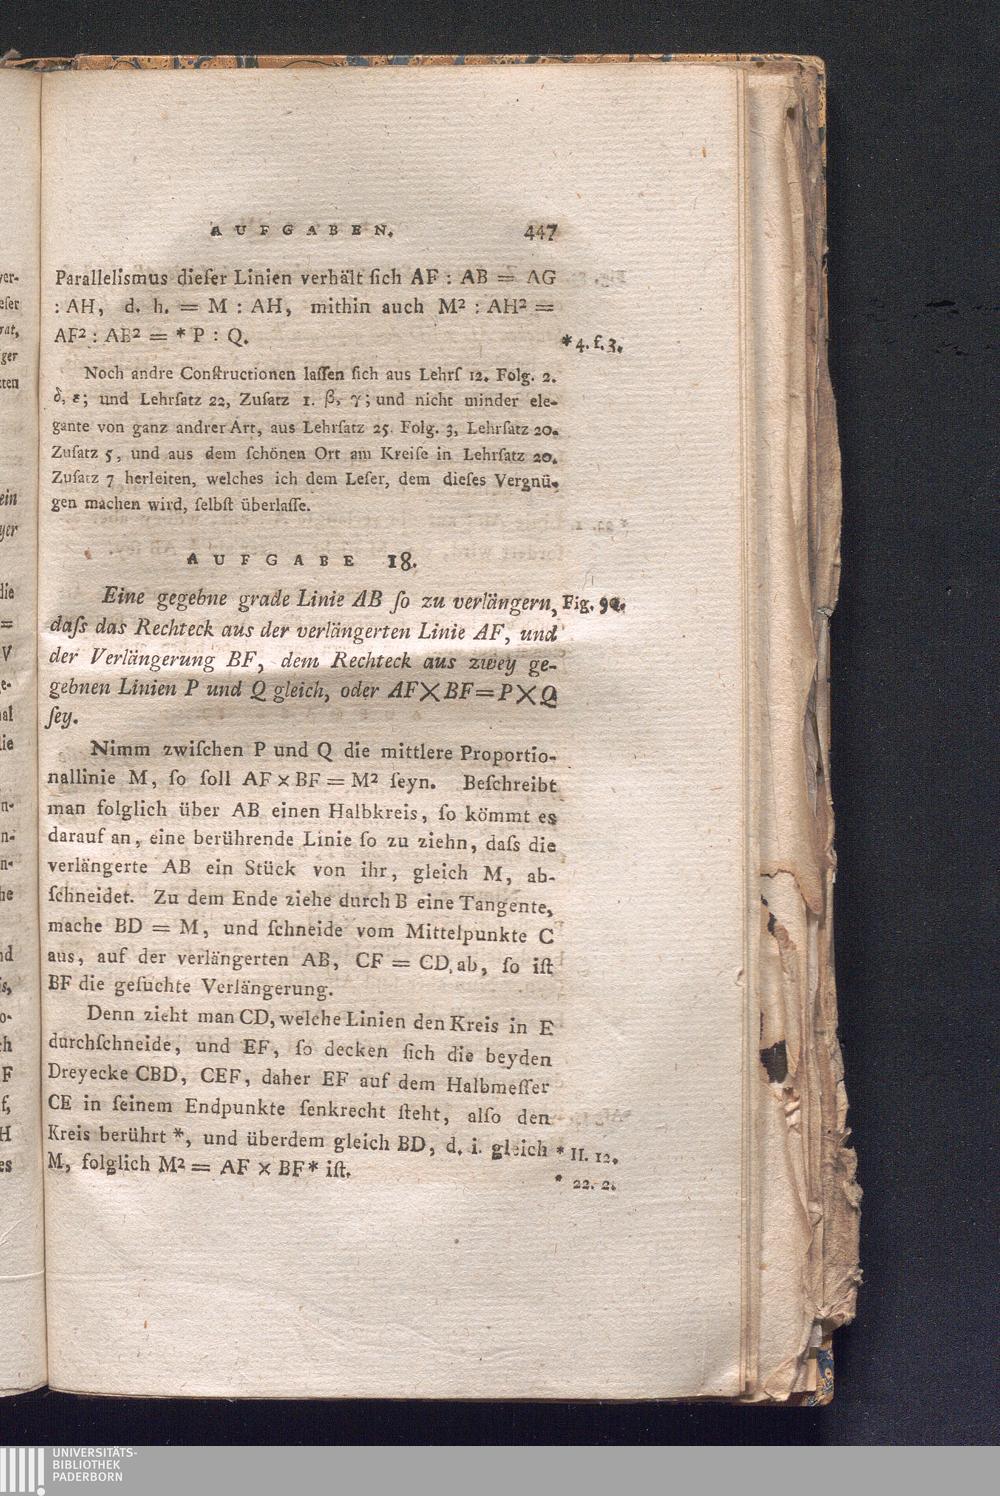 AUFGABEN. 447
Parallelismus dieſer Linien verhält ſich AF : AB = AG
: AH, d. h. = M : AH, mithin auch M² : AH² =
AF² : AB² = * P : Q.
* 4. f. 3.
Noch andre Conſtructionen laſſen ſich aus Lehrſ 12. Folg. 2.
δ, ε; und Lehrſatz 22, Zuſatz 1. β, γ; und nicht minder ele-
gante von ganz andrer Art, aus Lehrſatz 25. Folg. 3, Lehrſatz 20.
Zuſatz 5, und aus dem ſchönen Ort am Kreiſe in Lehrſatz 20.
Zuſatz 7 herleiten, welches ich dem Leſer, dem dieſes Vergnü-
gen machen wird, ſelbſt überlaſſe.
AUFGABE 18.
Eine gegebne grade Linie AB ſo zu verlängern, Fig.
daſs das Rechteck aus der verlängerten Linie AF, und
der Verlängerung BF, dem Rechteck aus zwey ge-
gebnen Linien P und Q gleich, oder AF×BF=P×Q
ſey.
Nimm zwiſchen P und Q die mittlere Proportio-
nallinie M, ſo ſoll AF × BF = M² ſeyn. Beſchreibt
man folglich über AB einen Halbkreis, ſo kömmt es
darauf an, eine berührende Linie ſo zu ziehn, daſs die
verlängerte AB ein Stück von ihr, gleich M, ab-
ſchneidet. Zu dem Ende ziehe durch B eine Tangente,
mache BD = M, und ſchneide vom Mittelpunkte C
aus, auf der verlängerten AB, CF = CD, ab, ſo iſt
BF die geſuchte Verlängerung.
Denn zieht man CD, welche Linien den Kreis in E
durchſchneide, und EF, ſo decken ſich die beyden
Dreyecke CBD, CEF, daher EF auf dem Halbmeſſer
CE in ſeinem Endpunkte ſenkrecht ſteht, alſo den
Kreis berührt *, und überdem gleich BD, d. i. gleich * II. 12.
M, folglich M² = AF × BF* iſt.
* 22. 2.
UNIVERSITÄTS-
BIBLIOTHEK
PADERBORN